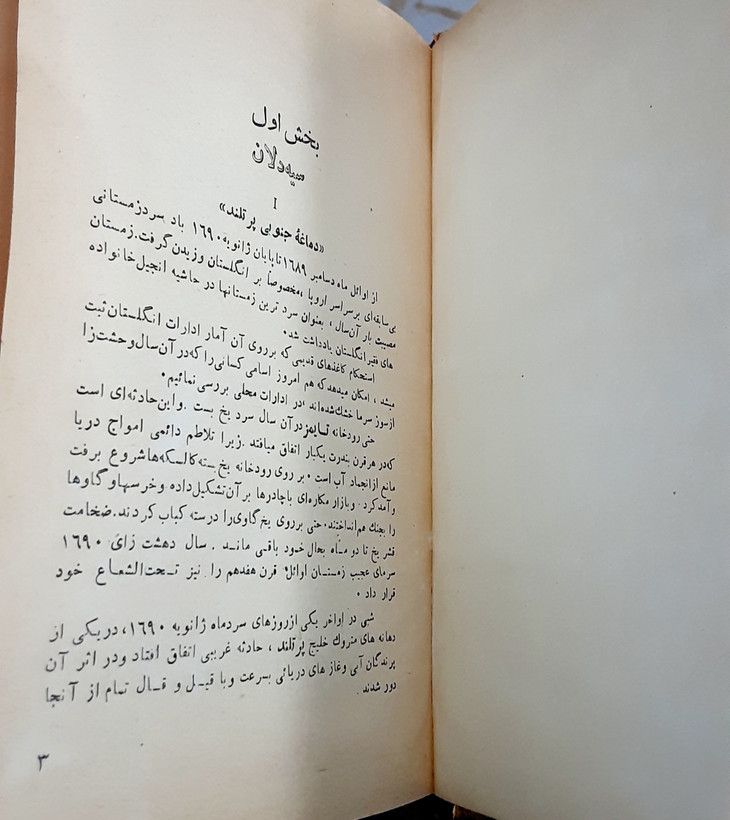 بخش اول
سیه‌دلان
I
«دماغهٔ جنوبی پرتلند»
از اوائل ماه دسامبر ۱۶۸۹ تا پایان ژانویه ۱۶۹۰ باد سرد زمستانی
بی‌سابقه‌ای بر سراسر اروپا ، مخصوصاً بر انگلستان وزیدن گرفت. زمستان
مصیبت بار آن‌سال ، بعنوان سردترین زمستانها در حاشیه انجیل خانواده
های فقیر انگلستان یادداشت شد .
استحکام کاغذهای قدیمی که بر روی آن آمار ادارات انگلستان ثبت
میشد ، امکان میدهد که هم امروز اسامی کسانی را که در آن سال وحشت‌زا
از سوز سرما خشک شده‌اند ، در ادارات محلی بررسی نمائیم .
حتی رودخانه تایمز در آن سال سرد یخ بست . و این حادثه‌ای است
که در هر قرن بندرت یکبار اتفاق میافتد . زیرا تلاطم دائمی امواج دریا
مانع از انجماد آب است . بر روی رودخانه یخ بسته کالسکه‌ها شروع برفت
و آمد کرد و بازار مکاره‌ای با چادرها بر آن تشکیل داده و خرسها و گاوها
را بجنک هم انداختند . حتی بر روی یخ گاوی را درسته کباب کردند. ضخامت
قشر یخ تا دو ماه بحال خود باقی ماند . سال دهشت زای ۱۶۹۰
سرمای عجیب زمستان اوائل قرن هفدهم را نیز تحت‌الشعاع خود
قرار داد .
شبی در اواخر یکی از روزهای سردماه ژانویه ۱۶۹۰، در یکی از
دهانه های متروك خلیج پرتلند ، حادثه غریبی اتفاق افتاد و در اثر آن
پرندگان آبی و غاز های دریائی بسرعت و با قیل و قال تمام از آنجا
دور شدند .
۳